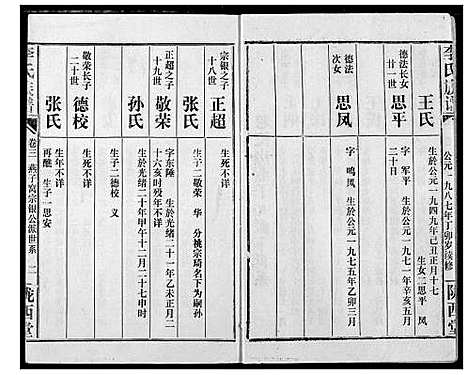 李氏族譜
公元一九八七年丁卯岁续修
陇西堂
王氏
生於公元一九四九年己丑正月十七
生女二思平 凤
德法长女
廿一世
思平
字 军平 生於公元一九七一年辛亥五月
二十日
德法
次女
思凤
字 鸣凤 生於公元一九七五年乙卯三月
宗银之子
十八世
正超
生死不详
张氏
生于二敬荣 华 分祧宗炳名下为嗣孙
正超之子
十九世
敬荣
字东陲 生於光绪二十一年乙未正月二
十六亥时殁年不详
孙氏
生於光绪二十年甲午十二月二十七申时
生子二德校 义
敬荣长子
二十世
德校
生死不详
张氏
生年不详
再醮 生子一思安
李氏族譜
卷三 燕子窝宗银公派世系
二
陇西堂